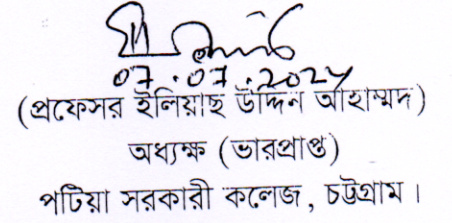 07.07.2024
(প্রফেসর ইলিয়াছ উদ্দিন আহাম্মদ)
অধ্যক্ষ (ভারপ্রাপ্ত)
পটিয়া সরকারী কলেজ, চট্টগ্রাম।